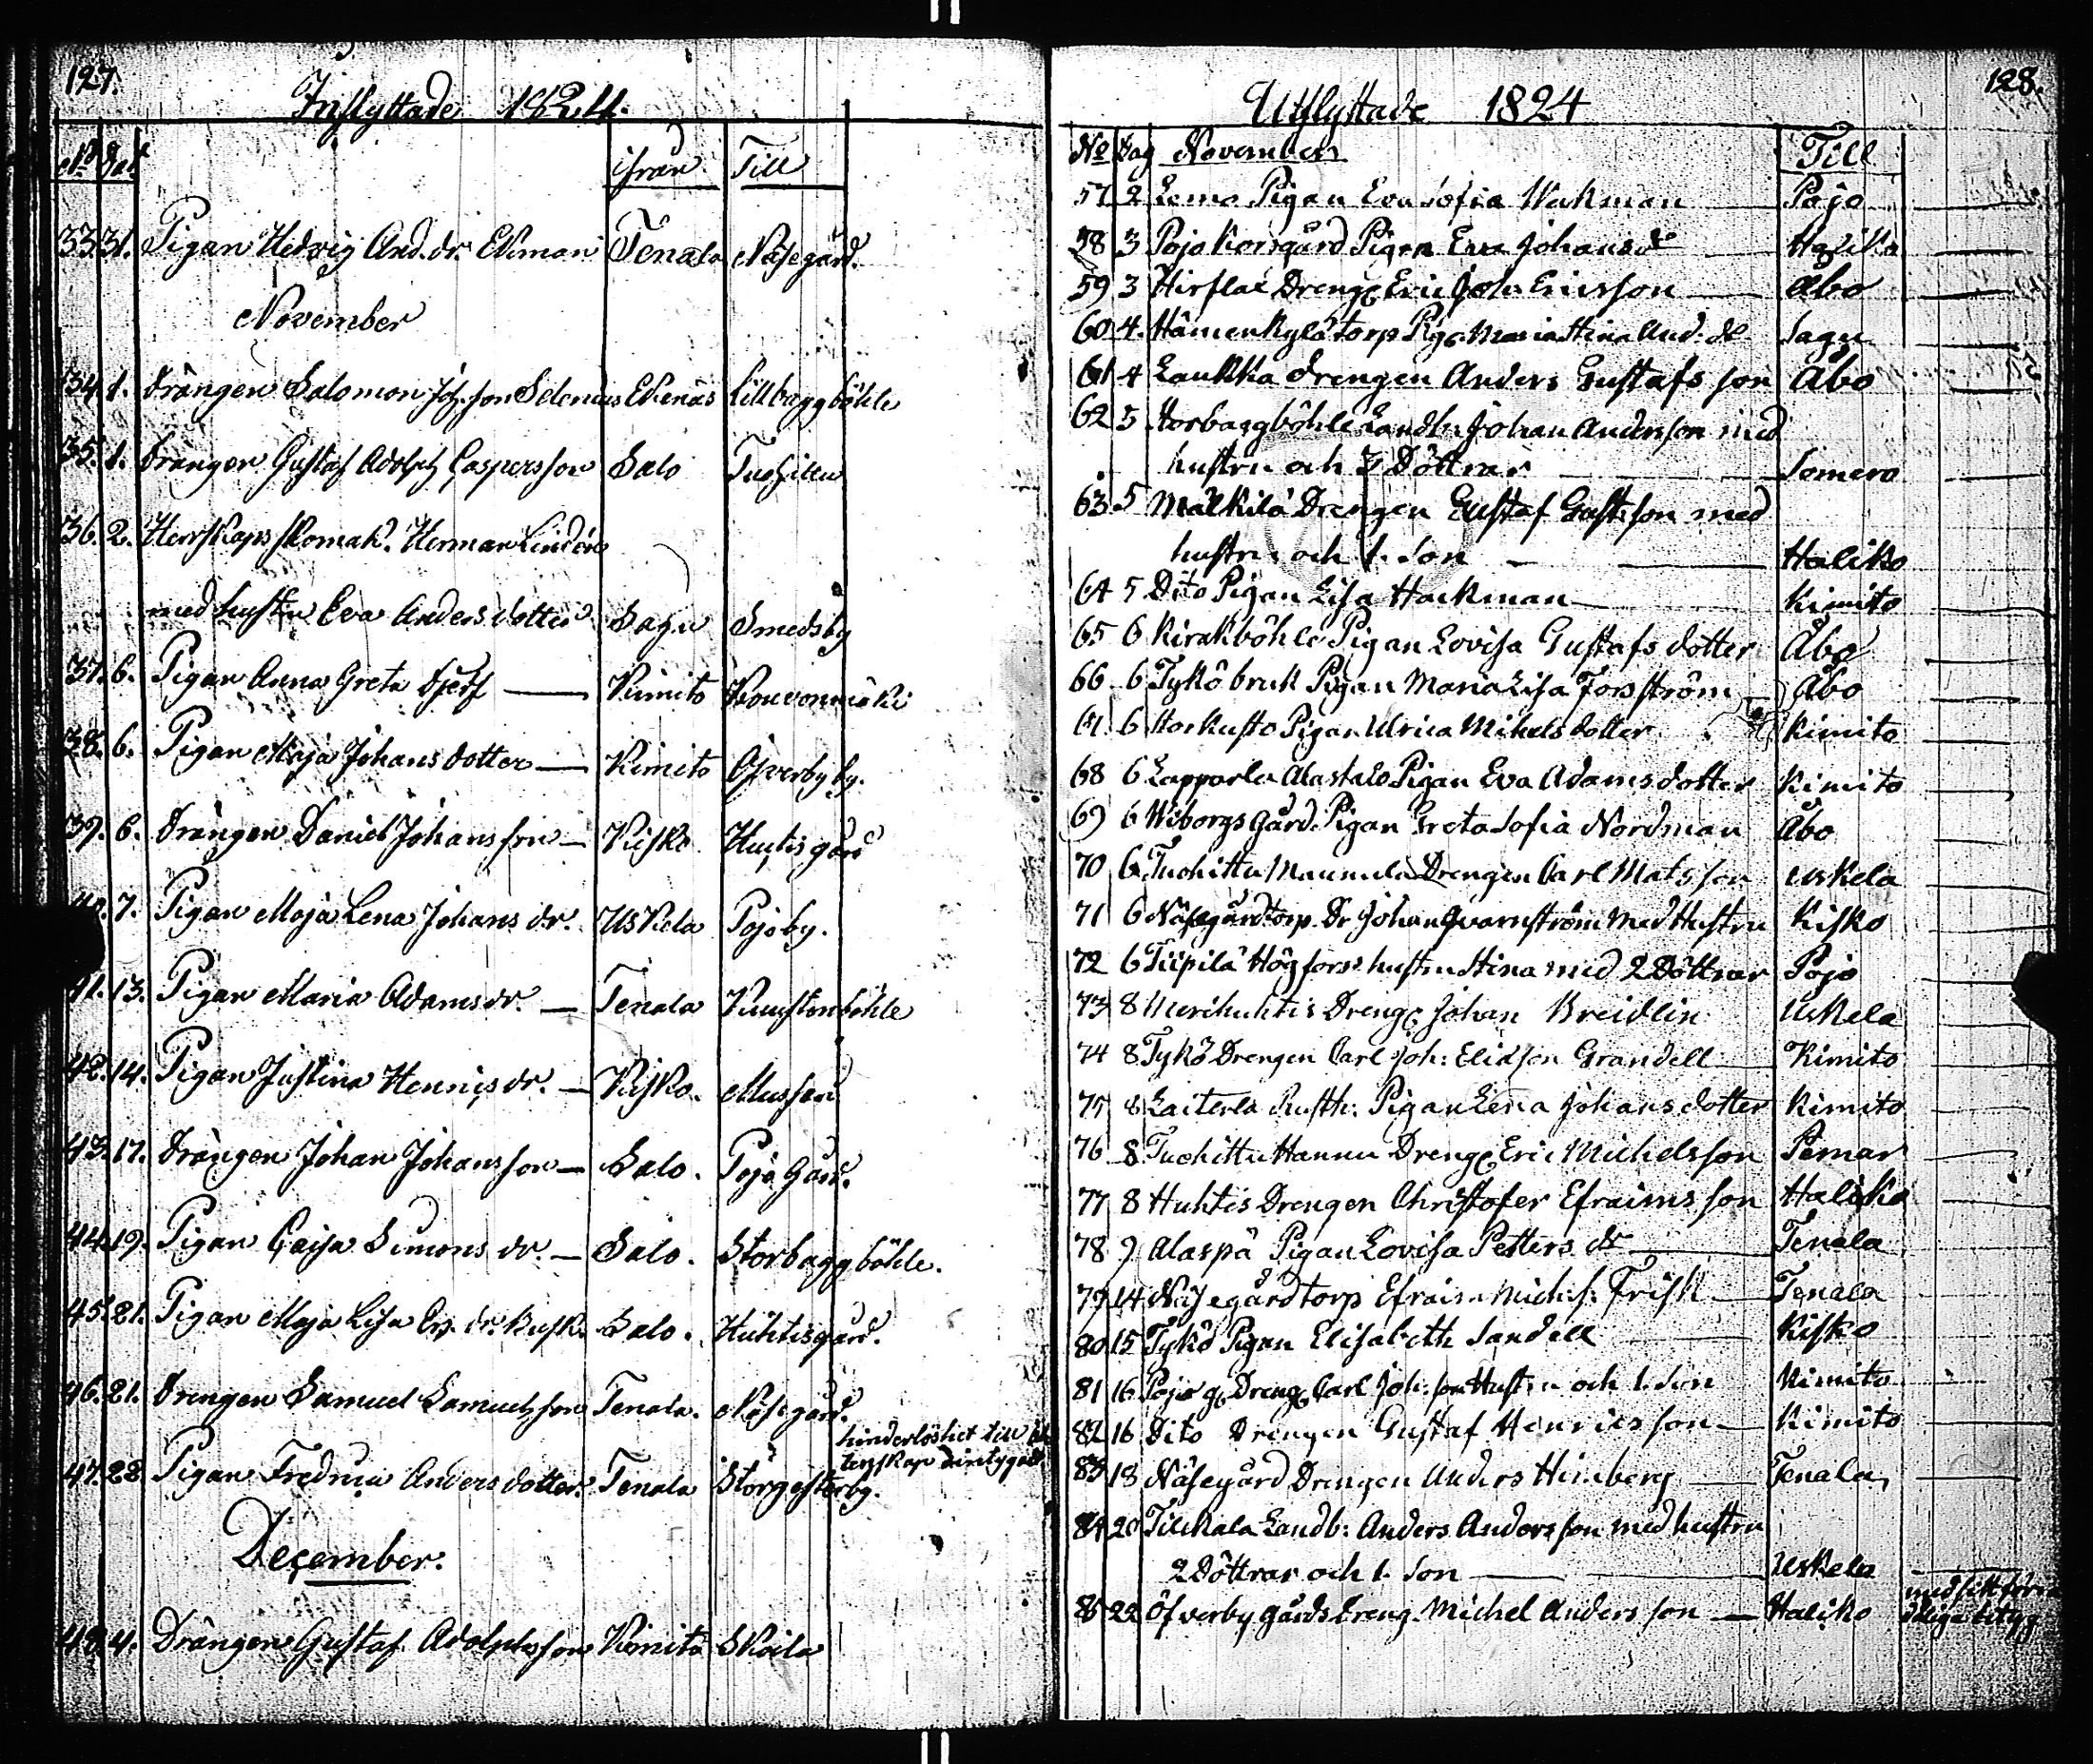 127.
Inflyttade 1824.
No Dat ifrån Till
33. 31. Pigan Hedvig And. dr. Ekman Tenala Näsegård.
November
34. 1. Drängen Salomon Joh. son Selenius Ekenäs Lillbaggböhle
35. 1. Drängen Gustaf Adolph Caspersson Salo
36. 2. Herrskaps skomak. Herman Lindén
med hustru Eva Anders dotter Sagu Smedsby
37. 6. Pigan Anna Greta Kimito
38. 6. Pigan Maja Johans dotter — Kimito Öfverby by.
39. 6. Drängen Daniel Johansson — Kisko Huhtis gård
40. 7. Pigan Maja Lena Johans dr. Uskela Pojo by.
41. 13. Pigan Maria Adams dr. — Tenala
42. 14. Pigan Justina Hennis dr. — Kisko.
43. 17. Drängen Johan Johansson — Salo. Pojo Gård.
44. 19. Pigan Caisa Simons dr. — Salo. Storbaggböhle.
45. 21. Pigan Maja Lisa Er. dr. Salo. Huhtisgård.
46. 21. Drengen Samuel Samuelsson Tenala. Näsegård.
hinderlöshet till äk
tenskap
47. 28 Pigan Fredrica Anders dotter. Tenala Storgesterby.
December.
48. 4. Drängen Gustaf Adolphsson Kimito Skoila
128.
Utflyttade 1824
No Dag November Till
57 2 Lemo Pigan Eva Sofia Wekman Pojo
58 3 Pojo Korsgård Pigan Eva Johans dr Haliko
59 3 Hirslax Dreng Eric Joh: Ericsson Åbo
60 4. Hämenkylä torp Pigo Maria Stina And: dr Sagu
61 4 Laukka drengen Anders Gustafs son Åbo
62 5 Storbaggböhle Landb: Johan Andersson med
hustru och 3 Döttrar Somero
63 5 Mälkilä Drengen Gustaf Gustsson med
hustru och 1. Son Haliko
64 5 Dito Pigan Lisa Hackman Kimito
65 6 Kirakböhle Pigan Lovisa Gustafs dotter Åbo
66 6 Tykö bruk Pigan Maria Lisa Forsström Åbo
67 6 Storkusto Pigan Ulrica Mikels dotter Kimito
68 6 Lapparla Alastalo Pigan Eva Adams dotter Kimito
69 6 Wiborgs Gård. Pigan Greta Sofia Nordman Åbo
70 6 Tuohittu Maunula Drengen Carl Mats son Uskela
71 6 Näsegård torp. Dr Johan Qvarnström Med Hustru Kisko
72 6 Tiipilä Högfors: hustru Stina med 2 Döttrar Pojo
73 8 Merihuhtis Dreng Johan Breidlin Uskela
74 8 Tykö Drengen Carl Joh: Eliasson Grandell Kimito
75 8 Laiterla Rusth: Pigan Lena Johans dotter Kimito
76 8 Tuohittu Hannu Dreng Eric Michelsson Pemar
77 8 Huhtis Drengen Christofer Efraims son Haliko
78 9 Alaspä Pigan Lovisa Petters dr Tenala
79 14 Näsegård torp Efraim Mich. s. Frisk Tenala
80 15 Tykö Pigan Elisabeth Sandell Kisko
81 16 Pojo g. Dreng Carl Joh: son Hustru och 1. Son Kimito
82 16 Dito Drengen Gustaf Henricsson — Kimito
83 18 Näsegård Drengen Anders Himberg Tenala
84 20 Tilikala Landb: Anders Andersson med hustru
2 Döttrar och 1. Son Uskela
85 22 Öfverby gårds dreng. Michel Andersson — Haliko